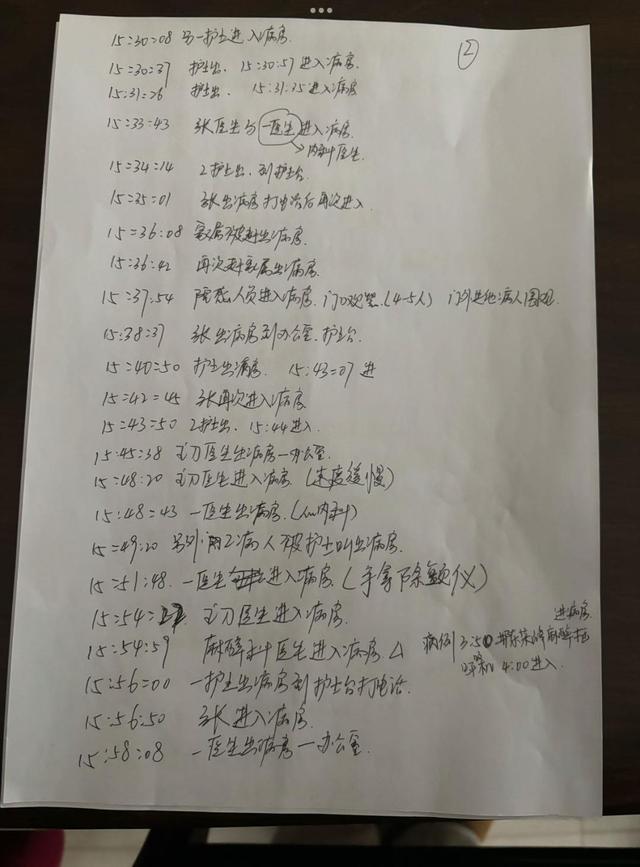 ②
15:30:08 另一护士进入病房.
15:30:37 护士出、15:30:57 进入病房.
15:31:26 护士出、15:31:35 进入病房
15:33:43 张医生与一医生进入病房.
→内科医生
15:34:14 2护士出、到护士台
15:35:01 张出病房打电话后再次进入.
15:36:08 家属被赶出病房.
15:36:42 再次赶家属出病房.
15:37:54 院感人员进入病房.门口观望.(4-5人) 门外其他病人围观.
15:38:37 张出病房到办公室.护士台.
15:40:50 护士出病房. 15:43:07 进
15:42:45 张再次进入病房
15:43:50 2护士出、15:44进入.
15:45:38 主刀医生出病房一办公室.
15:48:20 主刀医生进入病房.(速度缓慢)
15:48:43 一医生出病房.(心内科)
15:49:20 另外两个病人被护士叫出病房.
15:51:48. 一医生进入病房.(手拿除颤仪)
15:54: 主刀医生进入病房.
15:54:59 麻醉科医生进入病房△ 病例3:50 麻醉
进病房.
4:00进入.
15:56:00 一护士出病房到护士台打电话.
15:56:50 张进入病房.
15:58:08 一医生出病房一办公室.